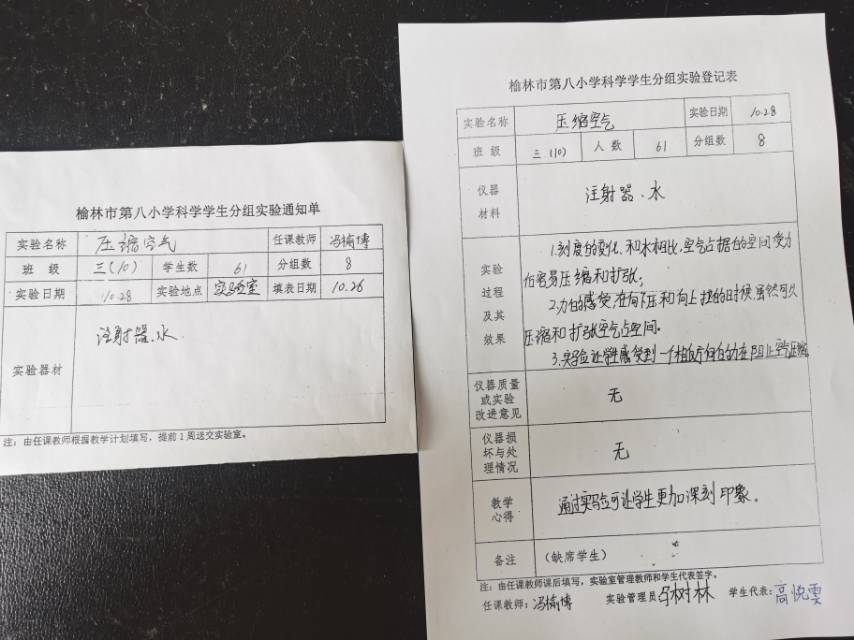 榆林市第八小学科学学生分组实验通知单
实验名称 压缩空气 任课教师 冯楠博
班 级 三(10) 学生数 61 分组数 8
实验日期 10.28 实验地点 实验室 填表日期 10.26
实验器材 注射器、水
注：由任课教师根据教学计划填写，提前1周送交实验室。
榆林市第八小学科学学生分组实验登记表
实验名称 压缩空气 实验日期 10.28
班 级 三(10) 人 数 61 分组数 8
仪器
材料
注射器、水
实验
过程
及其
效果
1.刻度的变化、和水相比，空气占据的空间受力
容易压缩和扩张。
2.力的感受，在向下压和向上拉的时候，虽然可以
压缩和扩张空气占空间。
3.实验让学生感受到一个相反方向的力在阻止空气压缩
仪器质量
或实验
改进意见
无
仪器损
坏与处
理情况
无
教学
心得
通过实验可让学生更加深刻印象。
备注 (缺席学生)
注：由任课教师课后填写，实验室管理教师和学生代表签字。
任课教师：冯楠博 实验管理员 树林 学生代表：高悦雯